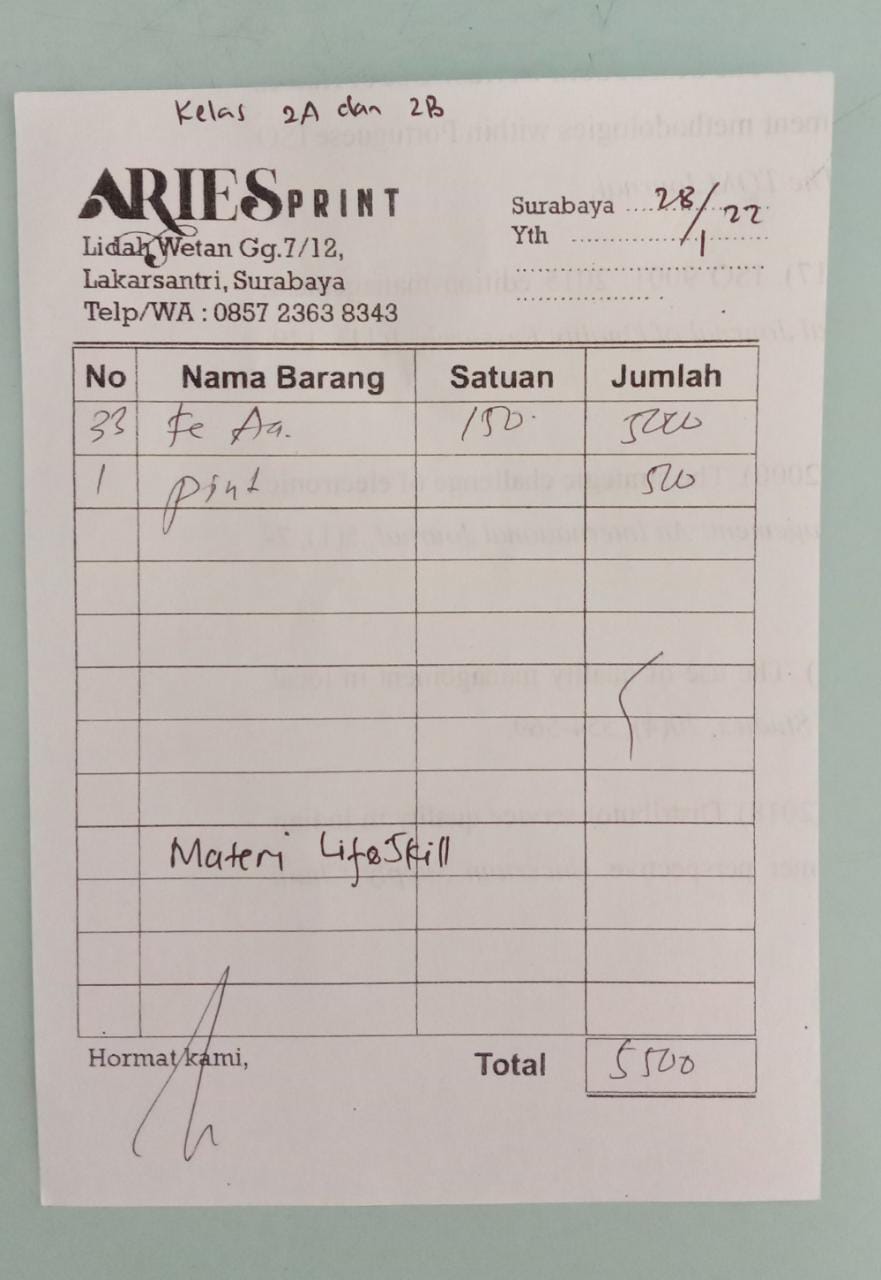 Kelas 2A dan 2B
ARIES PRINT
Lidah Wetan Gg.7/12,
Lakarsantri, Surabaya
Telp/WA : 0857 2363 8343
Surabaya 28/1 22
Yth
No Nama Barang Satuan Jumlah
33 150 5000
1 print 500
Materi LifeSkill
Hormat kami,
Total 5500